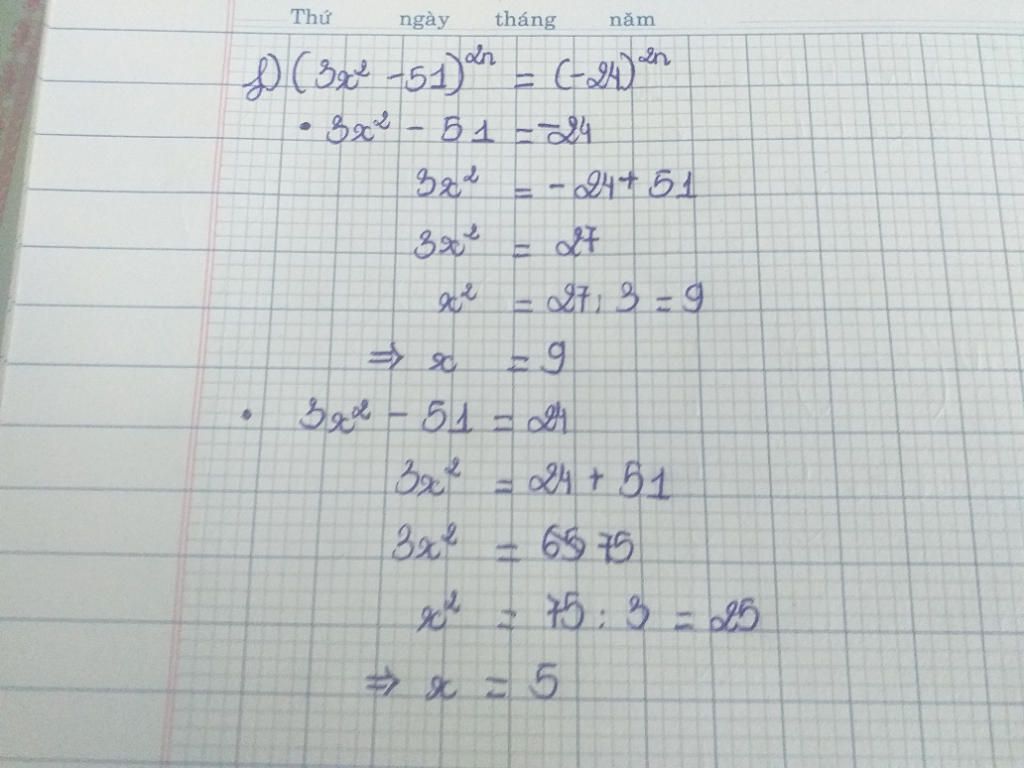 Thứ ngày tháng năm
f) (3x² - 51)²ⁿ = (-24)²ⁿ
• 3x² - 51 = -24
3x² = - 24 + 51
3x² = 27
x² = 27 : 3 = 9
⇒ x = 9
• 3x² - 51 = 24
3x² = 24 + 51
3x² = 65 75
x² = 75 : 3 = 25
⇒ x = 5